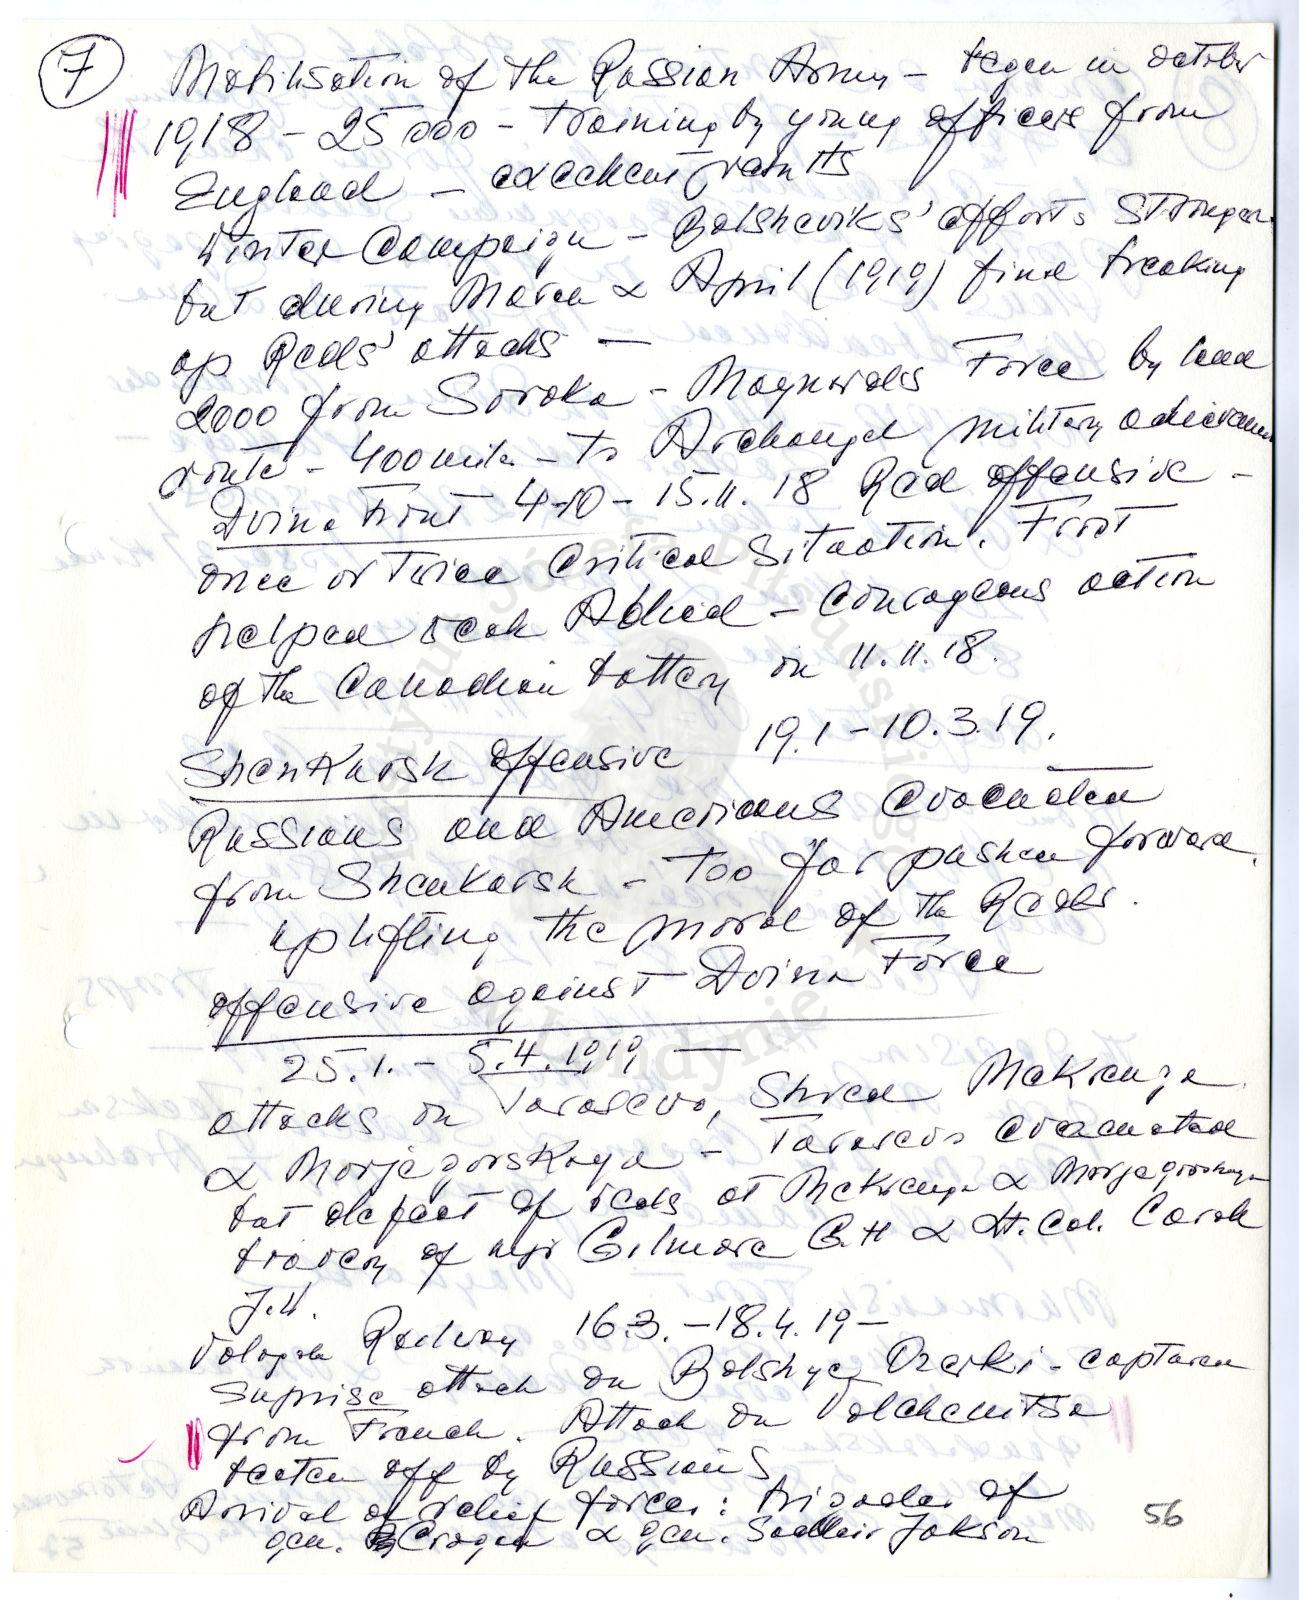 7
Mobilisation of the Russian Army – began in october
1918 – 25000 – training by young officers from
England – excellent results
Winter Campaign – Bolsheviks' efforts stronger
but during March & April (1919) final breaking
up Reds' attacks –
2000 from Soroka – Maynards Force by land
route – 400 mils – to Archangel military achievem
Dvina Front 4–10–15.11.18 Red offensive –
once or twice Critical Situation. Frost
helped weak Allied – Courageous action
of the Canadian battery on 11.11.18.
Shenkursk offensive 19.1–10.3.19.
Russians and Americans evacuated
from Shenkursk – Too far pushed forward.
uplifting the moral of the Reds.
offensive against Dvina Force
25.1. – 5.4.1919 –
attacks on Tarasevo, Shred Mekrenga
& Morjegorskaya – Tarasevo evacuated
but defeat of reds at Mekrenga & Morjegorskaya
bravery of mjr Gilmore G.H & Lt. Col. Carok
J.H.
Vologda Railway 16.3. – 18.4.19 –
Suprise attack on Bolshye Ozerki – captured
from French. Attack on
beaten off by Russians
Arrival of relief forces: brigades of
gen. Grogan & gen. Sadleir Jakson
56
Instytut Józefa Piłsudskiego
w Londynie